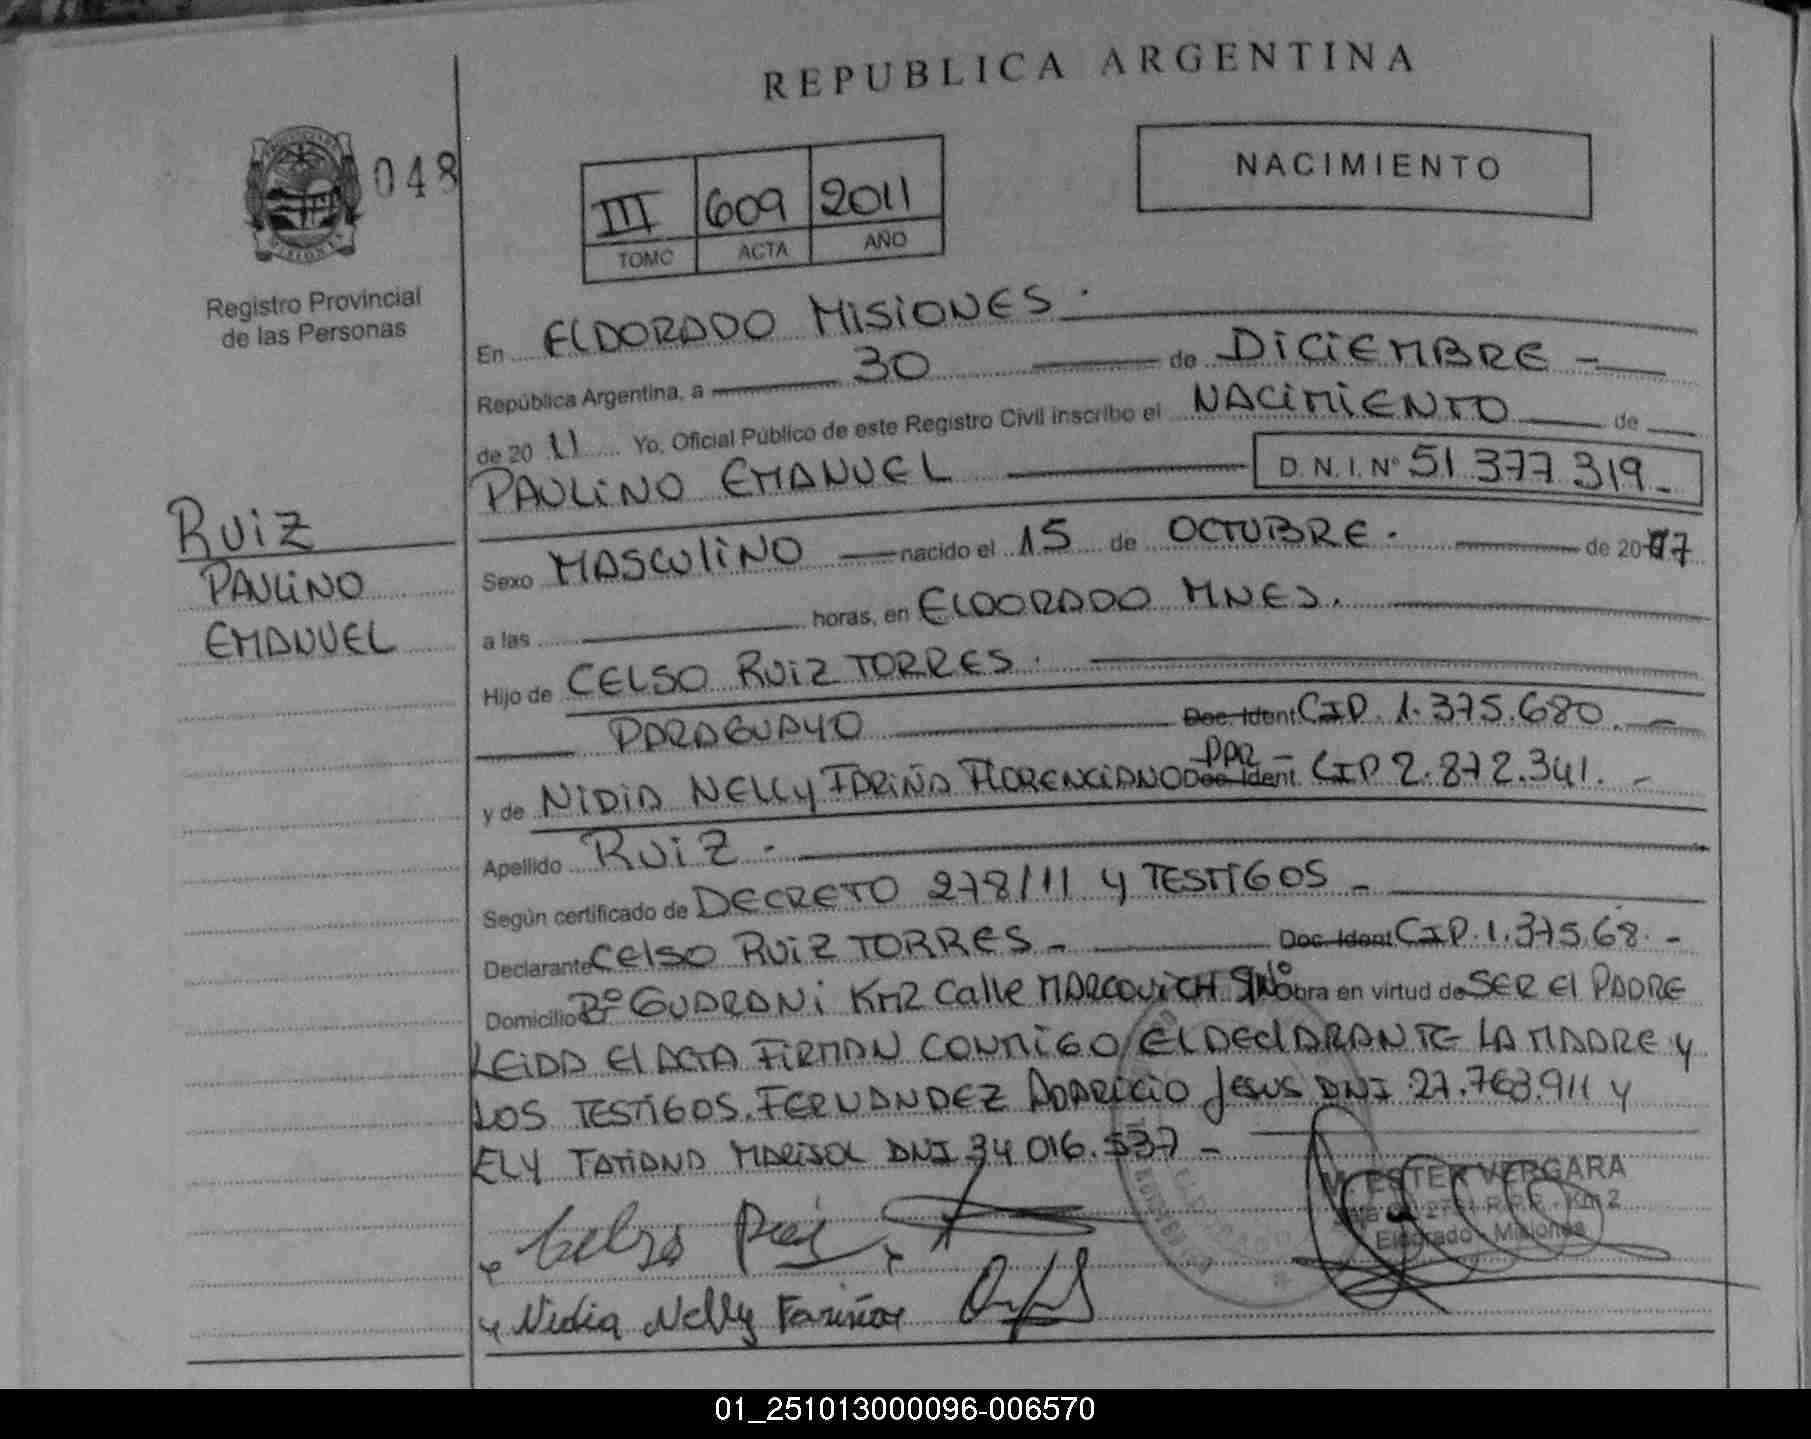 REPUBLICA ARGENTINA
048
NACIMIENTO
III 609 2011
TOMO ACTA AÑO
Registro Provincial
de las Personas
En ELDORADO MISIONES.
República Argentina, a 30 de DICIEMBRE -
de 20 11 Yo, Oficial Público de este Registro Civil inscribo el NACIMIENTO de
PAULINO EMANUEL D.N.I.Nº 51.377.319-
RUIZ
PAULINO
EMANUEL
Sexo MASCULINO nacido el 15 de OCTUBRE. de 20 7
a las horas, en ELDORADO MNES.
Hijo de CELSO RUIZ TORRES.
PARAGUAYO Doc. Ident CIP. 1.375.680. -
PAR -
y de NIDIA NELLY FARIÑA FLORENCIANO Doc. Ident. CIP 2.872.341. -
Apellido RUIZ.
Según certificado de DECRETO 278/11 y TESTIGOS -
Declarante CELSO RUIZ TORRES - Doc. Ident CIP. 1.375.68. -
Domicilio Bº GUARANI KM2 Calle MARCOVICH S/Nº obra en virtud de SER El PADRE
LEIDA El ACTA FIRMAN CONMIGO El DEClARANTE LA MADRE y
LOS TESTIGOS. FERNANDEZ APARICIO JESUS DNI 27.763.911 y
ELY TATIANA MARISOL DNI 34 016.537 -
M. ESTER VERGARA
R.P.P. - Km 2
Eldorado - Misiones
Celso Ruiz
Nidia Nelly Fariña
01_251013000096-006570